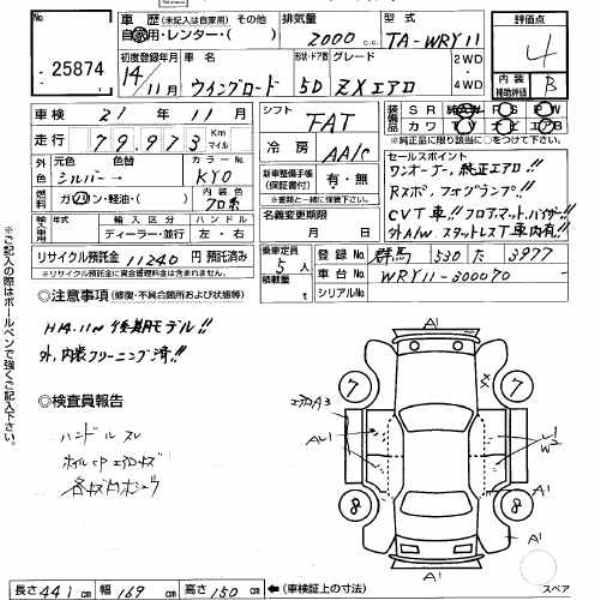 No. 25874
車歴 (未記入は自家用) その他
自家用・レンター・( )
排気量 2000 c.c.
型式 TA-WRY11
評価点 4
内装補助評価 B
初度登録年月 14年11月
車名 ウイングロード
形状・ドア数 5D
グレード ZXエアロ
2WD・4WD
車検 21年11月
シフト FAT
装備品 SR 純ナビ PS PW
カワ TV ナビ エアB
※純正品に限り該当に○をつけて下さい
走行 79,973 Km マイル
冷房 AA/C
セールスポイント
ワンオーナー, 純正エアロ!!
Rスポ, フォグランプ!!
CVT車!! フロアマット, バイザー!!
外A/W スタットレスT車内有!!
外色 元色 シルバー→ 色替
カラーNo. KY0
新車整備手帳(保証書付) 有・無
※書類と一緒に保管して下さい。
燃料 ガソリン・軽油・( )
内装色 フロ系
名義変更期限 月 日
輸入車用 年式 輸入区分 ハンドル
ディーラー・並行 左・右
リサイクル預託金 11240 円 預託済み
※リサイクル預託金に資金管理料金は含まれません。
乗車定員 5人
積載量 t
登録No. 群馬 530 た 3977
車台No. WRY11-300070
シリアルNo.
◎注意事項 (修復・不具合箇所および状態等)
H14.11〜後期モデル!!
外,内装クリーニング済!!
◎検査員報告
ハンドルスレ
A1
XX
7
7
エアロA3
AU1
8
8
A1
A1
A1
スペア
長さ 441 cm 幅 169 cm 高さ 150 cm ←(車検証上の寸法)
※ご記入の際はボールペンで強くご記入下さい。